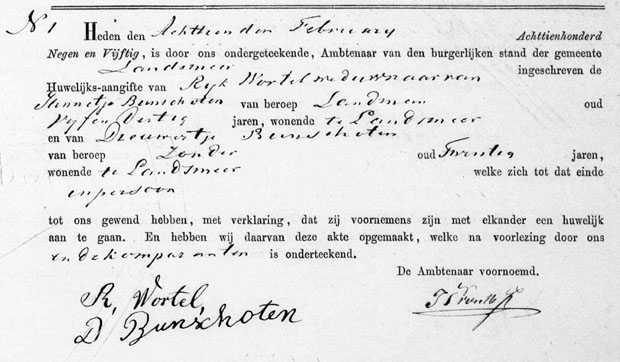 N 1 Heden den Achttienden February Achttienhonderd
Negen en Vijftig, is door ons ondergeteekende, Ambtenaar van den burgerlijken stand der gemeente
Landsmeer ingeschreven de
Huwelijks-aangifte van Ryk Wortel weduwnaar van
Jannetje Bunschoten van beroep Landman oud
Vyf en Dertig jaren, wonende te Landsmeer
en van Dieuwertje Bunschoten
van beroep Zonder oud Twintig jaren,
wonende te Landsmeer welke zich tot dat einde
in persoon
tot ons gewend hebben, met verklaring, dat zij voornemens zijn met elkander een huwelijk
aan te gaan. En hebben wij daarvan deze akte opgemaakt, welke na voorlezing door ons
en de komparanten is onderteekend.
De Ambtenaar voornoemd.
R, Wortel
D Bunschoten